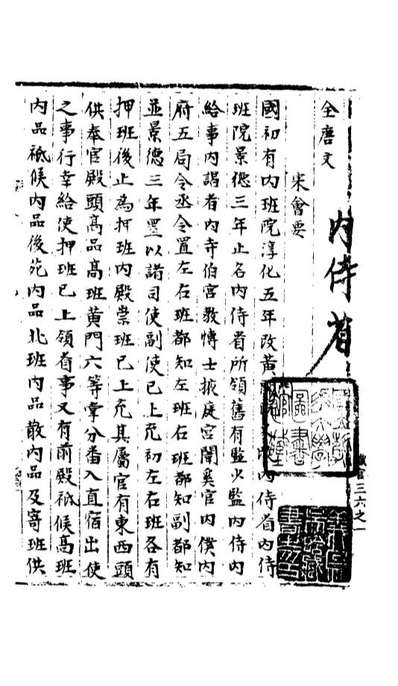 內侍省
全唐文
宋會要
國初有內班院淳化五年改黃內侍省內侍
班院景徳三年止名內侍省所領舊有監火監內侍內
給事內謁者內寺伯宮教博士掖庭宮闈奚官內僕內
府五局令丞令置左右班都知左班右班都知副都知
並景徳三年置以諸司使副使已上充初左右班各有
押班後止為押班內殿崇班已上充其屬官有東西頭
供奉官殿頭高品高班黃門六等掌分番入直宿出使
之事行幸給使押班已上領省事又有前殿祗候高班
內品祗候內品後苑內品北班內品散內品及寄班供
三六之一